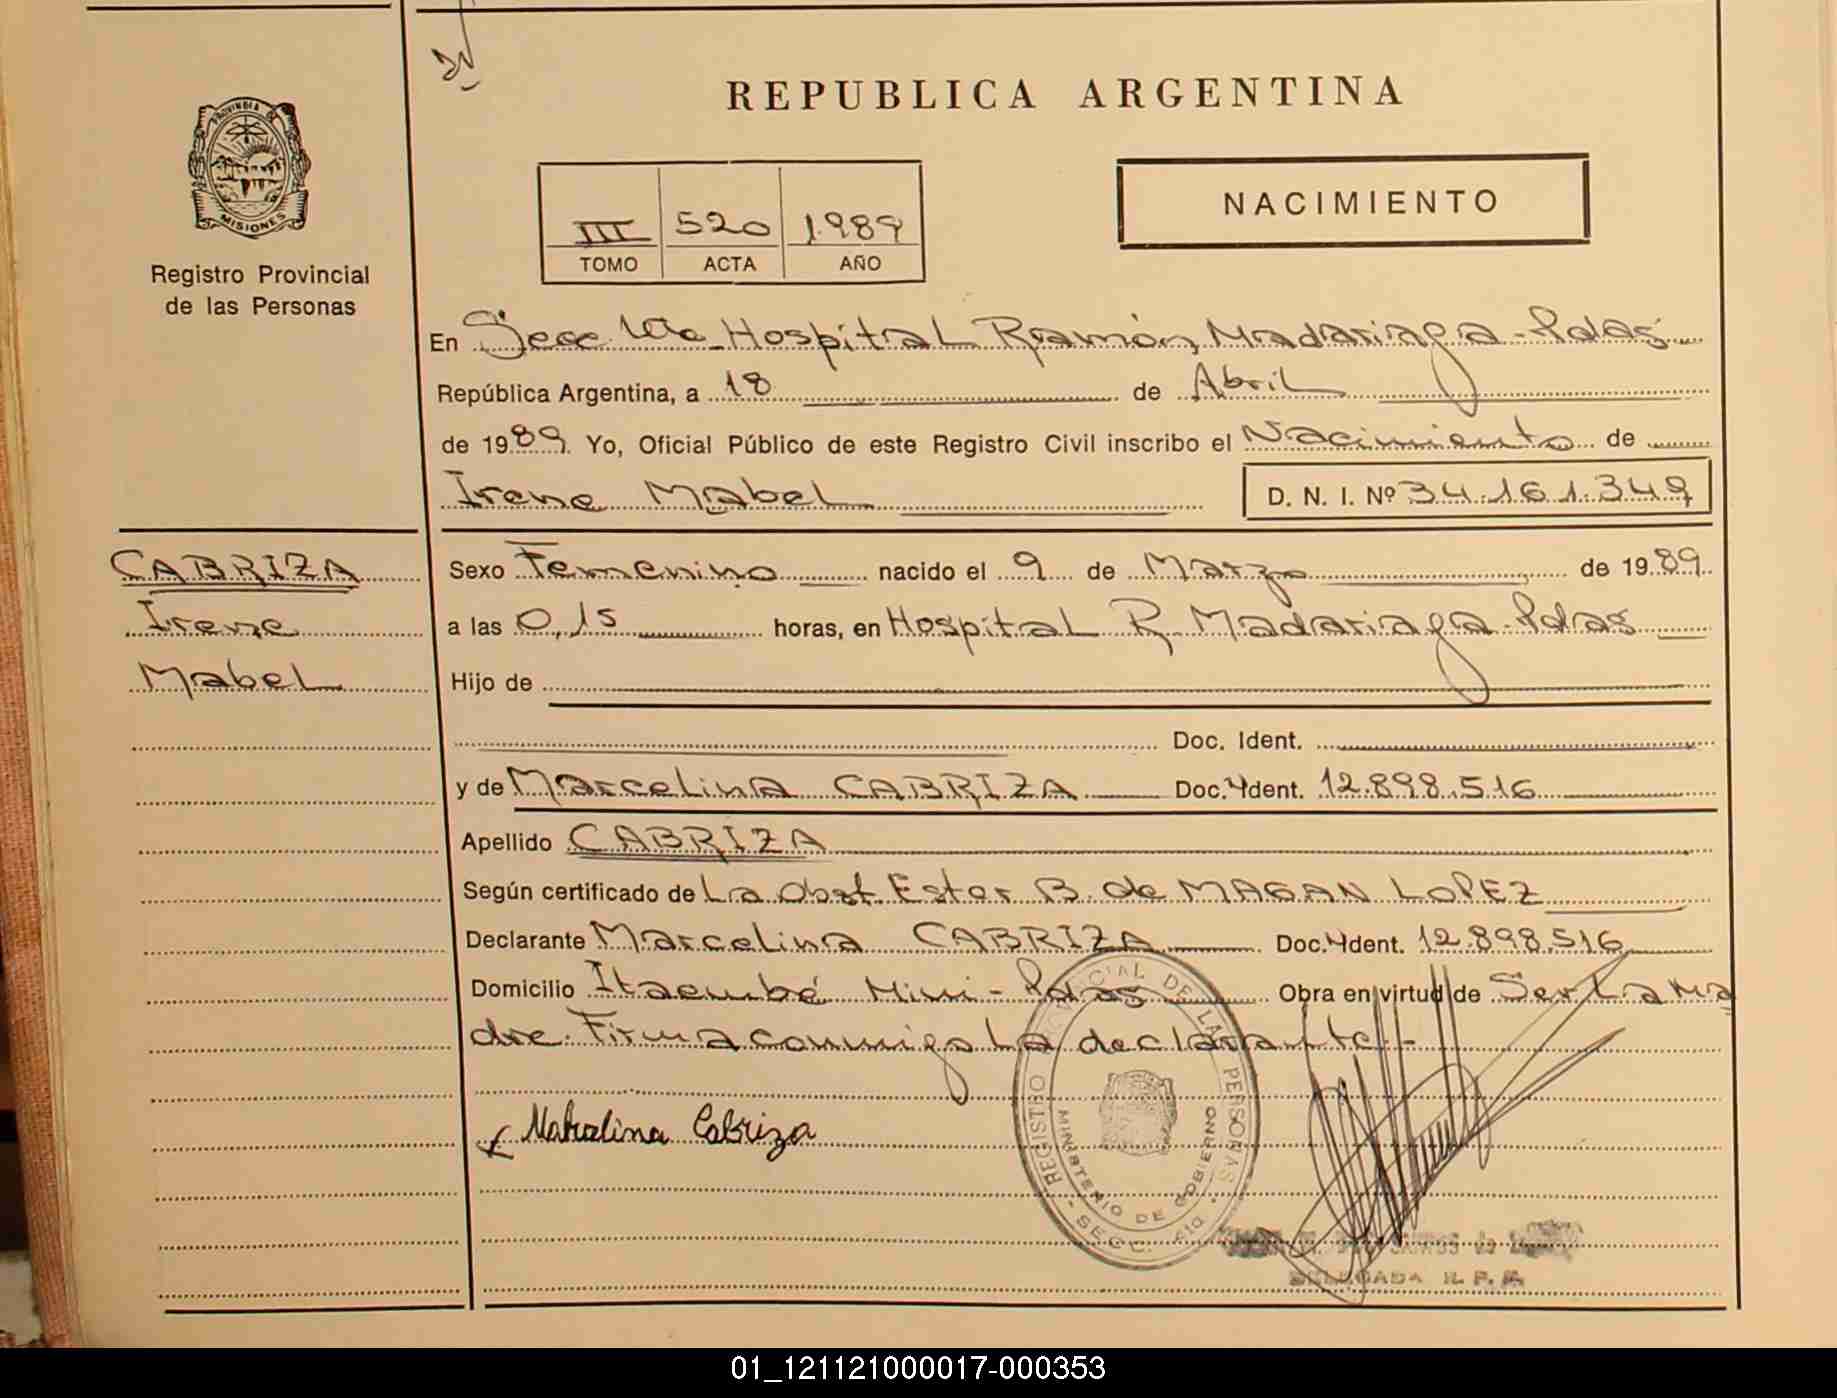 REPUBLICA ARGENTINA
PROVINCIA DE
MISIONES
Registro Provincial
de las Personas
III 520 1989
TOMO ACTA AÑO
NACIMIENTO
En Secc. 1a. Hospital Ramón Madariaga - Pdas
República Argentina, a 18 de Abril
de 1989. Yo, Oficial Público de este Registro Civil inscribo el Nacimiento de
Irene Mabel D. N. I. Nº 34.161.349
CABRIZA
Irene
Mabel
Sexo Femenino nacido el 9 de Marzo de 1989.
a las 0,15 horas, en Hospital R. Madariaga - Pdas
Hijo de
Doc. Ident.
y de Marcelina CABRIZA Doc. Ydent. 12.898.516
Apellido CABRIZA
Según certificado de La Obst. Ester B. de MAGAN LOPEZ
Declarante Marcelina CABRIZA Doc. Ydent. 12.898.516
Domicilio Itaembé Mini - Pdas Obra en virtud de Ser La Ma
dre. Firma conmigo La declarante.-
Mahalina Cabriza
REGISTRO PROVINCIAL DE LAS PERSONAS
MINISTERIO DE GOBIERNO
- SECC.
DELEGADA R. P. P.
01_121121000017-000353